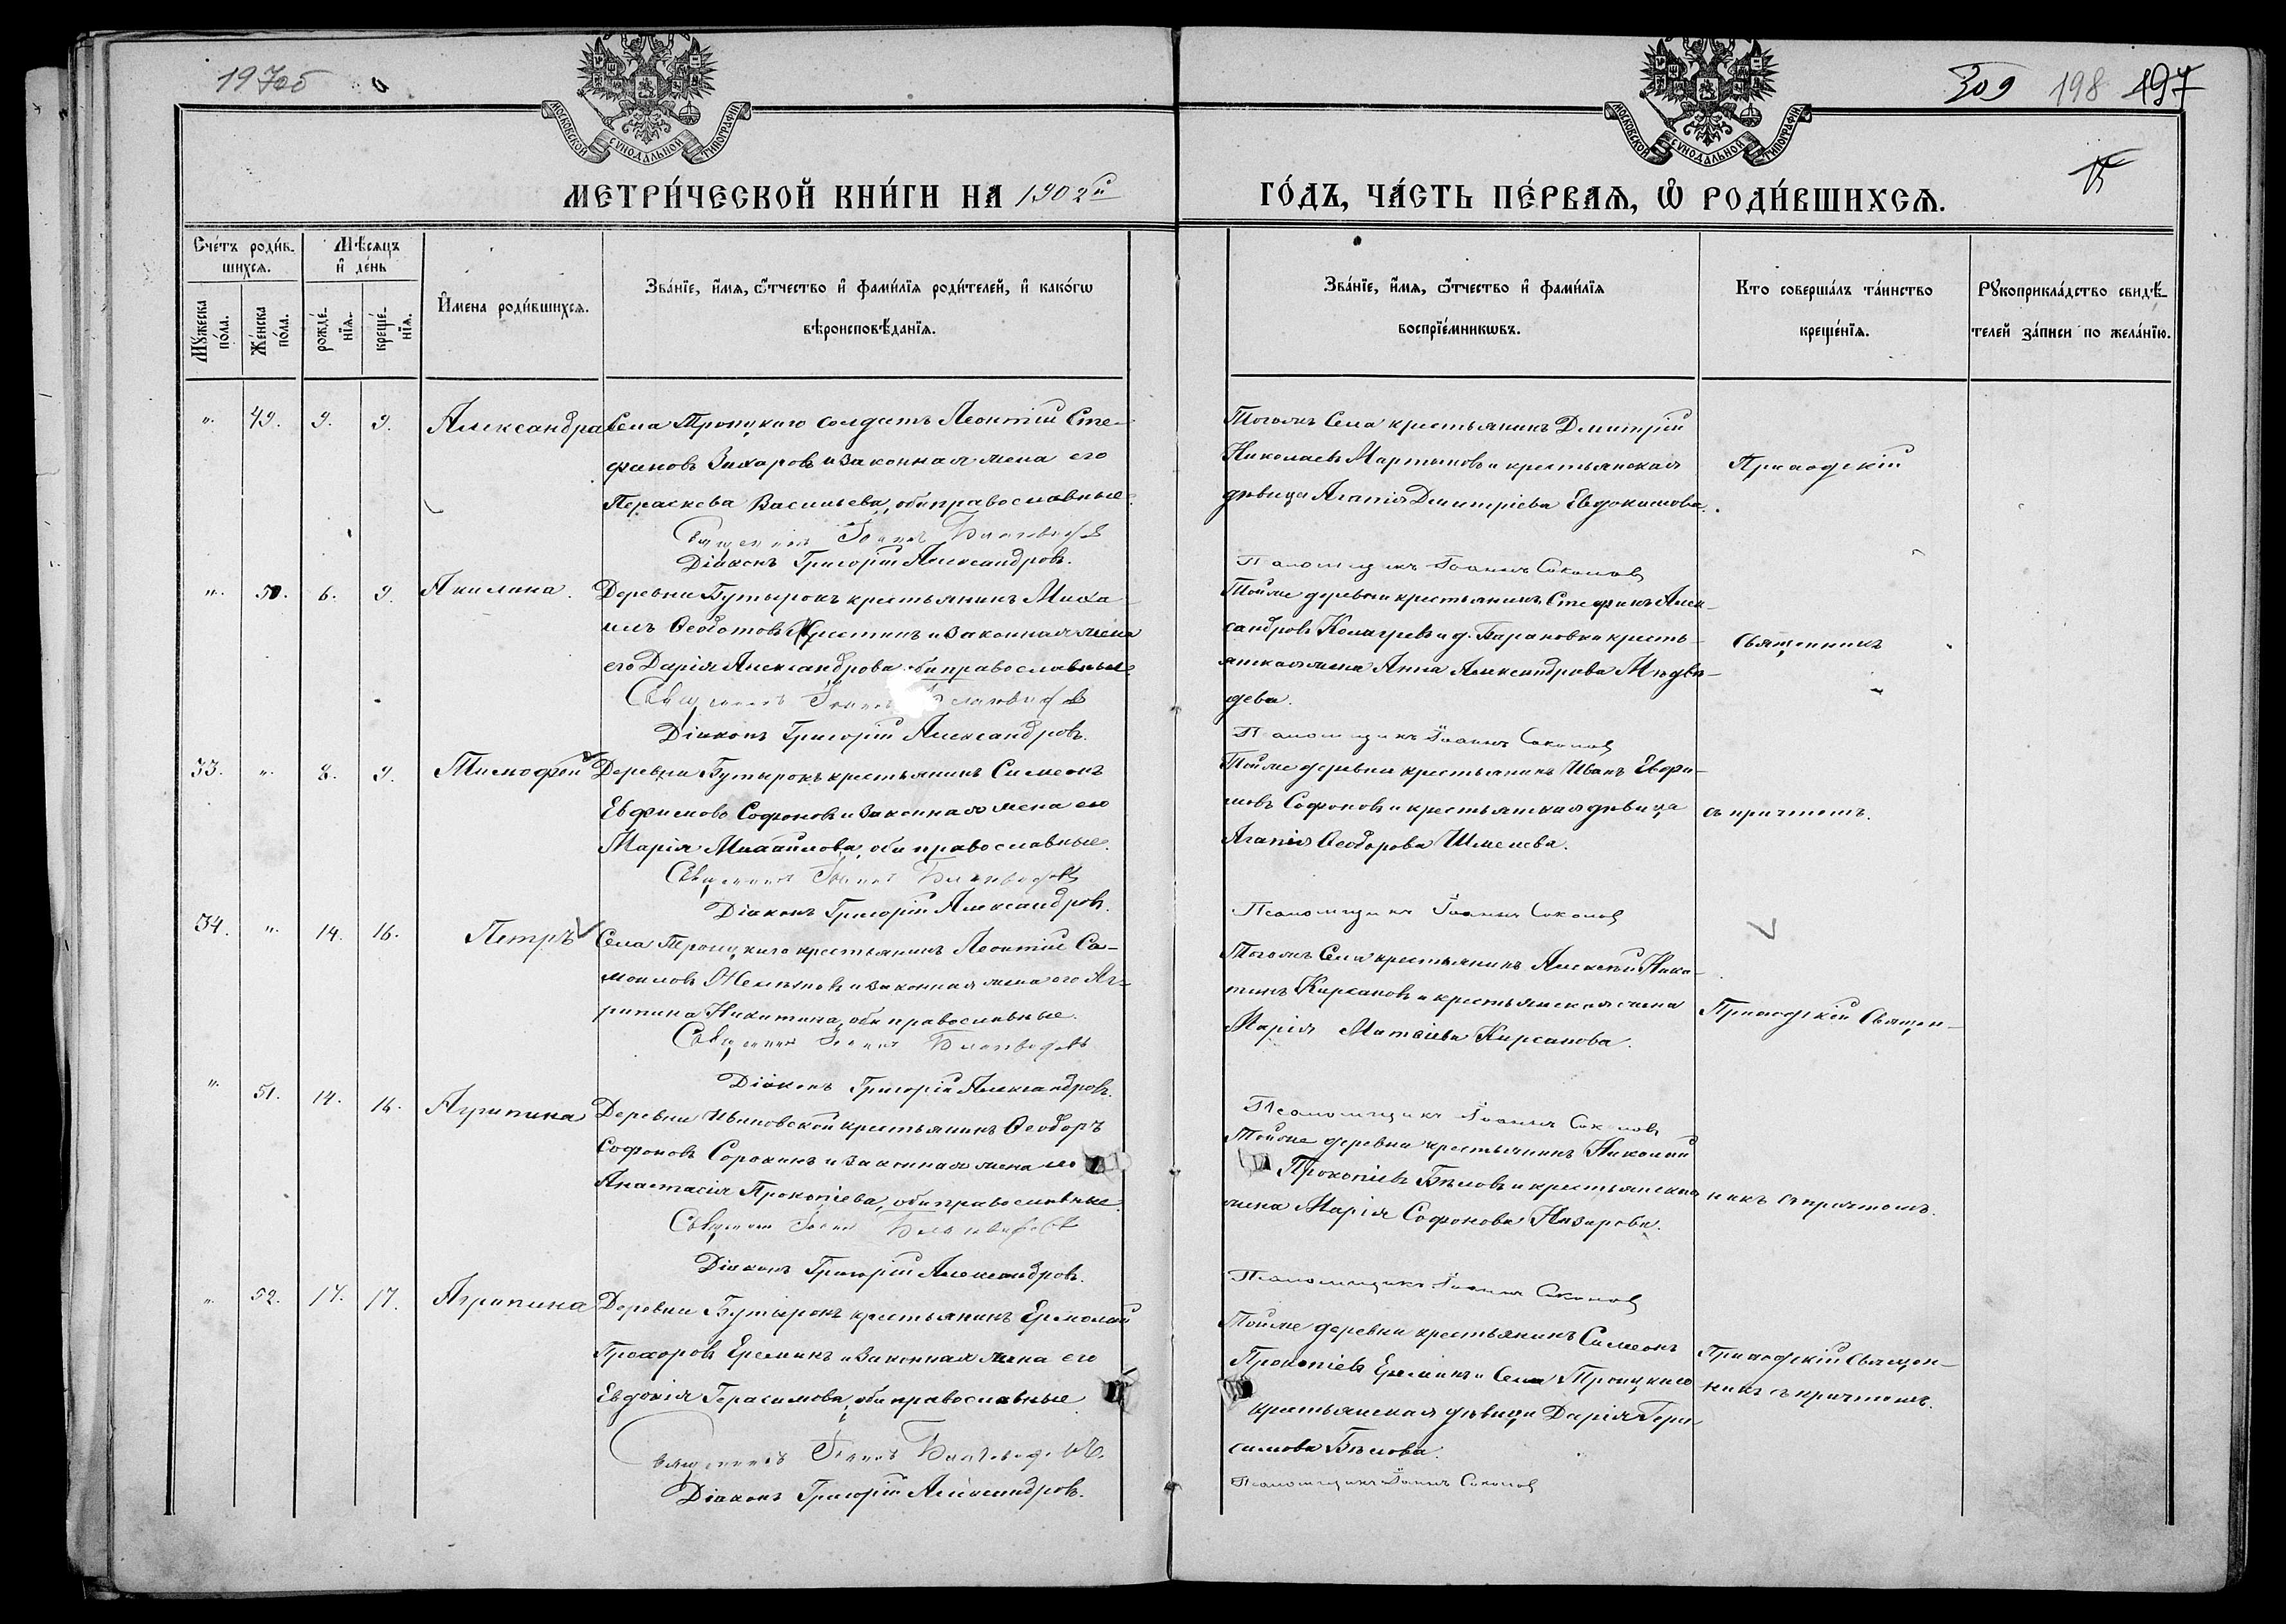 197об
309 198 197
МОСКОВСКОЙ СѴНОДАЛЬНОЙ ТИПОГРАФІИ
МОСКОВСКОЙ СѴНОДАЛЬНОЙ ТИПОГРАФІИ
МЕТРИ́ЧЕСКОЙ КНИ́ГИ НА 1902й
ГО́ДЪ, ЧА́СТЬ ПЕ́РВАѦ, Ѡ РОДИ́ВШИХСѦ.
Сче́тъ роди́в-
шихсѧ.
Мѣ́сѧцъ
и҆ де́нь
Мꙋ́жеска
по́ла.
Же́нска
по́ла.
рожде́-
нїѧ.
креще́-
нїѧ.
И҆мена роди́вшихсѧ.
Зва́нїе, и҆́мѧ, ѻ҆́тчество и҆ фами́лїѧ роди́телей, и҆ како́гѡ
вѣроисповѣ́данїѧ.
Зва́нїе, и҆́мѧ, ѻ҆́тчество и҆ фами́лїѧ
воспрїе́мникѡвъ.
Кто соверша́лъ та́инство
креще́нїѧ.
Рꙋкоприкла́дство свидѣ́-
телей за́писи по жела́нїю.
". 49. 9. 9. Александра
Села Троицкаго солдатъ Леонтій Сте-
фановъ Захаровъ и законная жена его
Параскева Васильева, оба православные.
Священникъ Іоаннъ
Діаконъ Григорій Александровъ.
Тогожъ Села крестьянинъ Димитрій
Николаевъ Мартыновъ и крестьянская
дѣвица Агапія Димитріева Евдокимова.
Псаломщикъ Іоаннъ Соколовъ
Приходскій
". 50. 6. 9. Акилина.
Деревни Бутырокъ крестьянинъ Миха-
илъ Ѳеодотовъ и законная жена
его Дарія Александрова оба православные.
Священникъ Іоаннъ
Діаконъ Григорій Александровъ.
Тойже деревни крестьянинъ Стефанъ Алек-
сандровъ и д. Барановки кресть-
янская жена Анна Александрова Медвѣ-
дева.
Псаломщикъ Іоаннъ Соколовъ
Священникъ
33. ". 8. 9. Тимофей
Деревни Бутырокъ крестьянинъ Симеонъ
Евфимовъ Софоновъ и законная жена его
Марія Михаилова, оба православные.
Священникъ Іоаннъ
Діаконъ Григорій Александровъ.
Тойже деревни крестьянинъ Иванъ Евфи-
мовъ Софоновъ и крестьянская дѣвица
Агапія Ѳеодорова Шмелева.
Псаломщикъ Іоаннъ Соколовъ
съ причтомъ.
34. ". 14. 16. Петръ
Села Троицкаго крестьянинъ Леонтій Са-
моиловъ и законная жена его Аг-
рипина Никитина, оба православные.
Священникъ Іоаннъ
Діаконъ Григорій Александровъ.
Тогожъ Села крестьянинъ Алексѣй Ники-
тинъ Кирсановъ и крестьянская жена
Марія Матѳіева Кирсанова.
Псаломщикъ Іоаннъ Соколовъ
Приходскій Священ-
". 51. 14. 16. Агрипина
Деревни Ивановской крестьянинъ Ѳеодоръ
Софоновъ Сорокинъ и законная жена его
Анастасія Прокопіева, оба православные.
Священникъ Іоаннъ
Діаконъ Григорій Александровъ.
Тойже деревни крестьянинъ Николай
Прокопіевъ Бѣловъ и крестьянская
жена Марія Софонова Назарова.
Псаломщикъ Іоаннъ Соколовъ
никъ съ причтомъ.
". 52. 17. 17. Агрипина
Деревни Бутырокъ крестьянинъ Ермолай
Прохоровъ Ереминъ и законная жена его
Евдокія Герасимова, оба православные
Священникъ Іоаннъ
Діаконъ Григорій Александровъ.
Тойже деревни крестьянинъ Симеонъ
Прокопіевъ Ереминъ и Села Троицкаго
крестьянская дѣвица Дарія Гера-
симова Бѣлова.
Псаломщикъ Іоаннъ Соколовъ
Приходскій Священ-
никъ съ причтомъ.